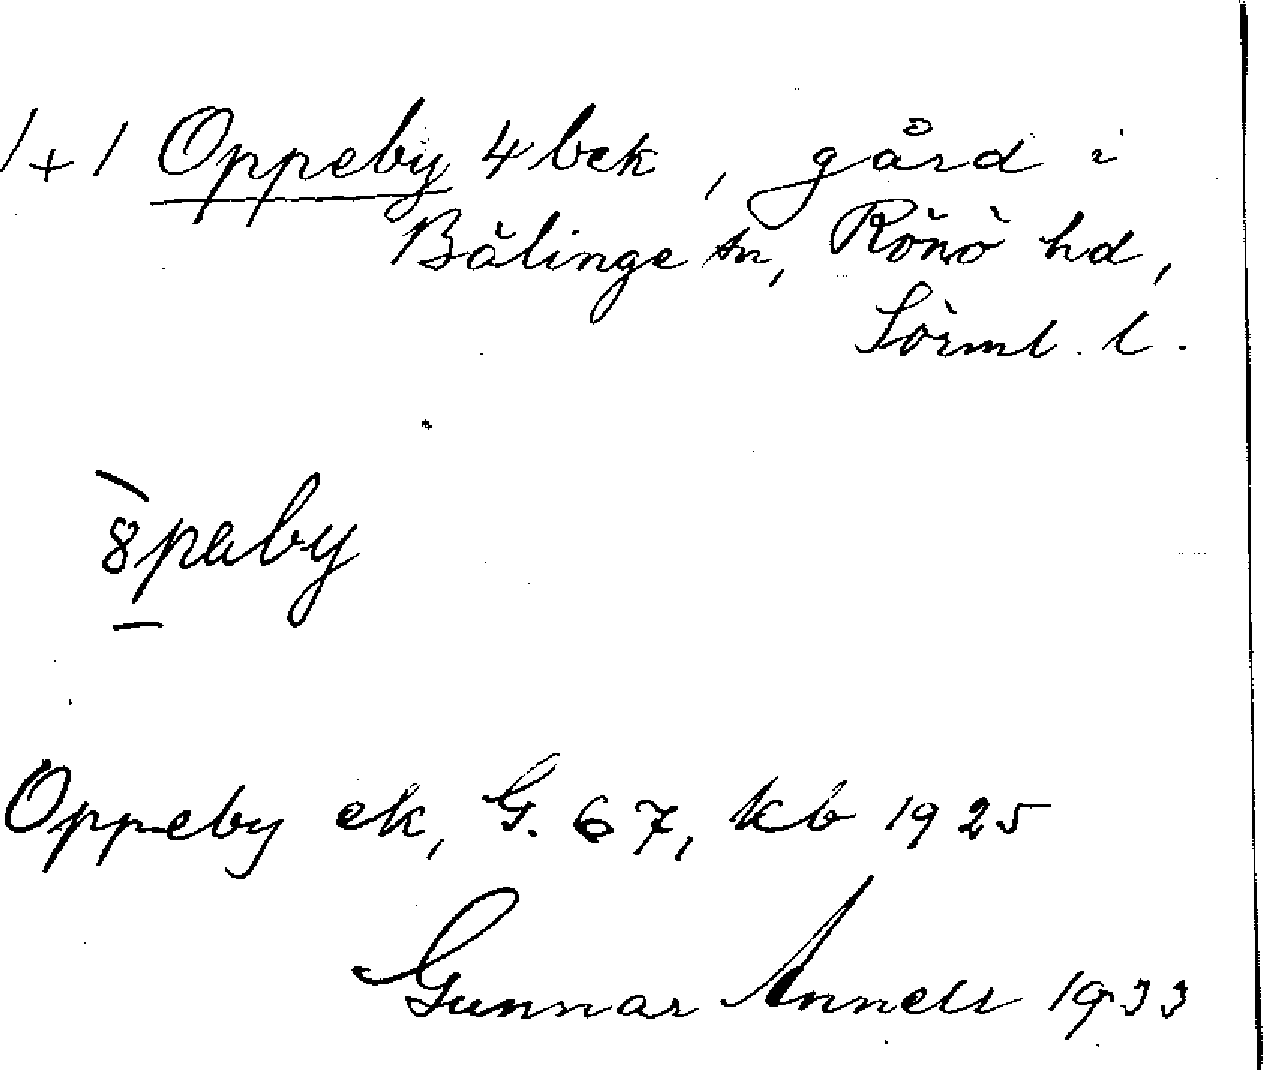 1+1 Oppeby 4 bek, gård i
Bälinge sn, Rönö hd,
Sörml. l.
Oppeby ek, G. 67, kb 1925
Gunnar Annell 1933